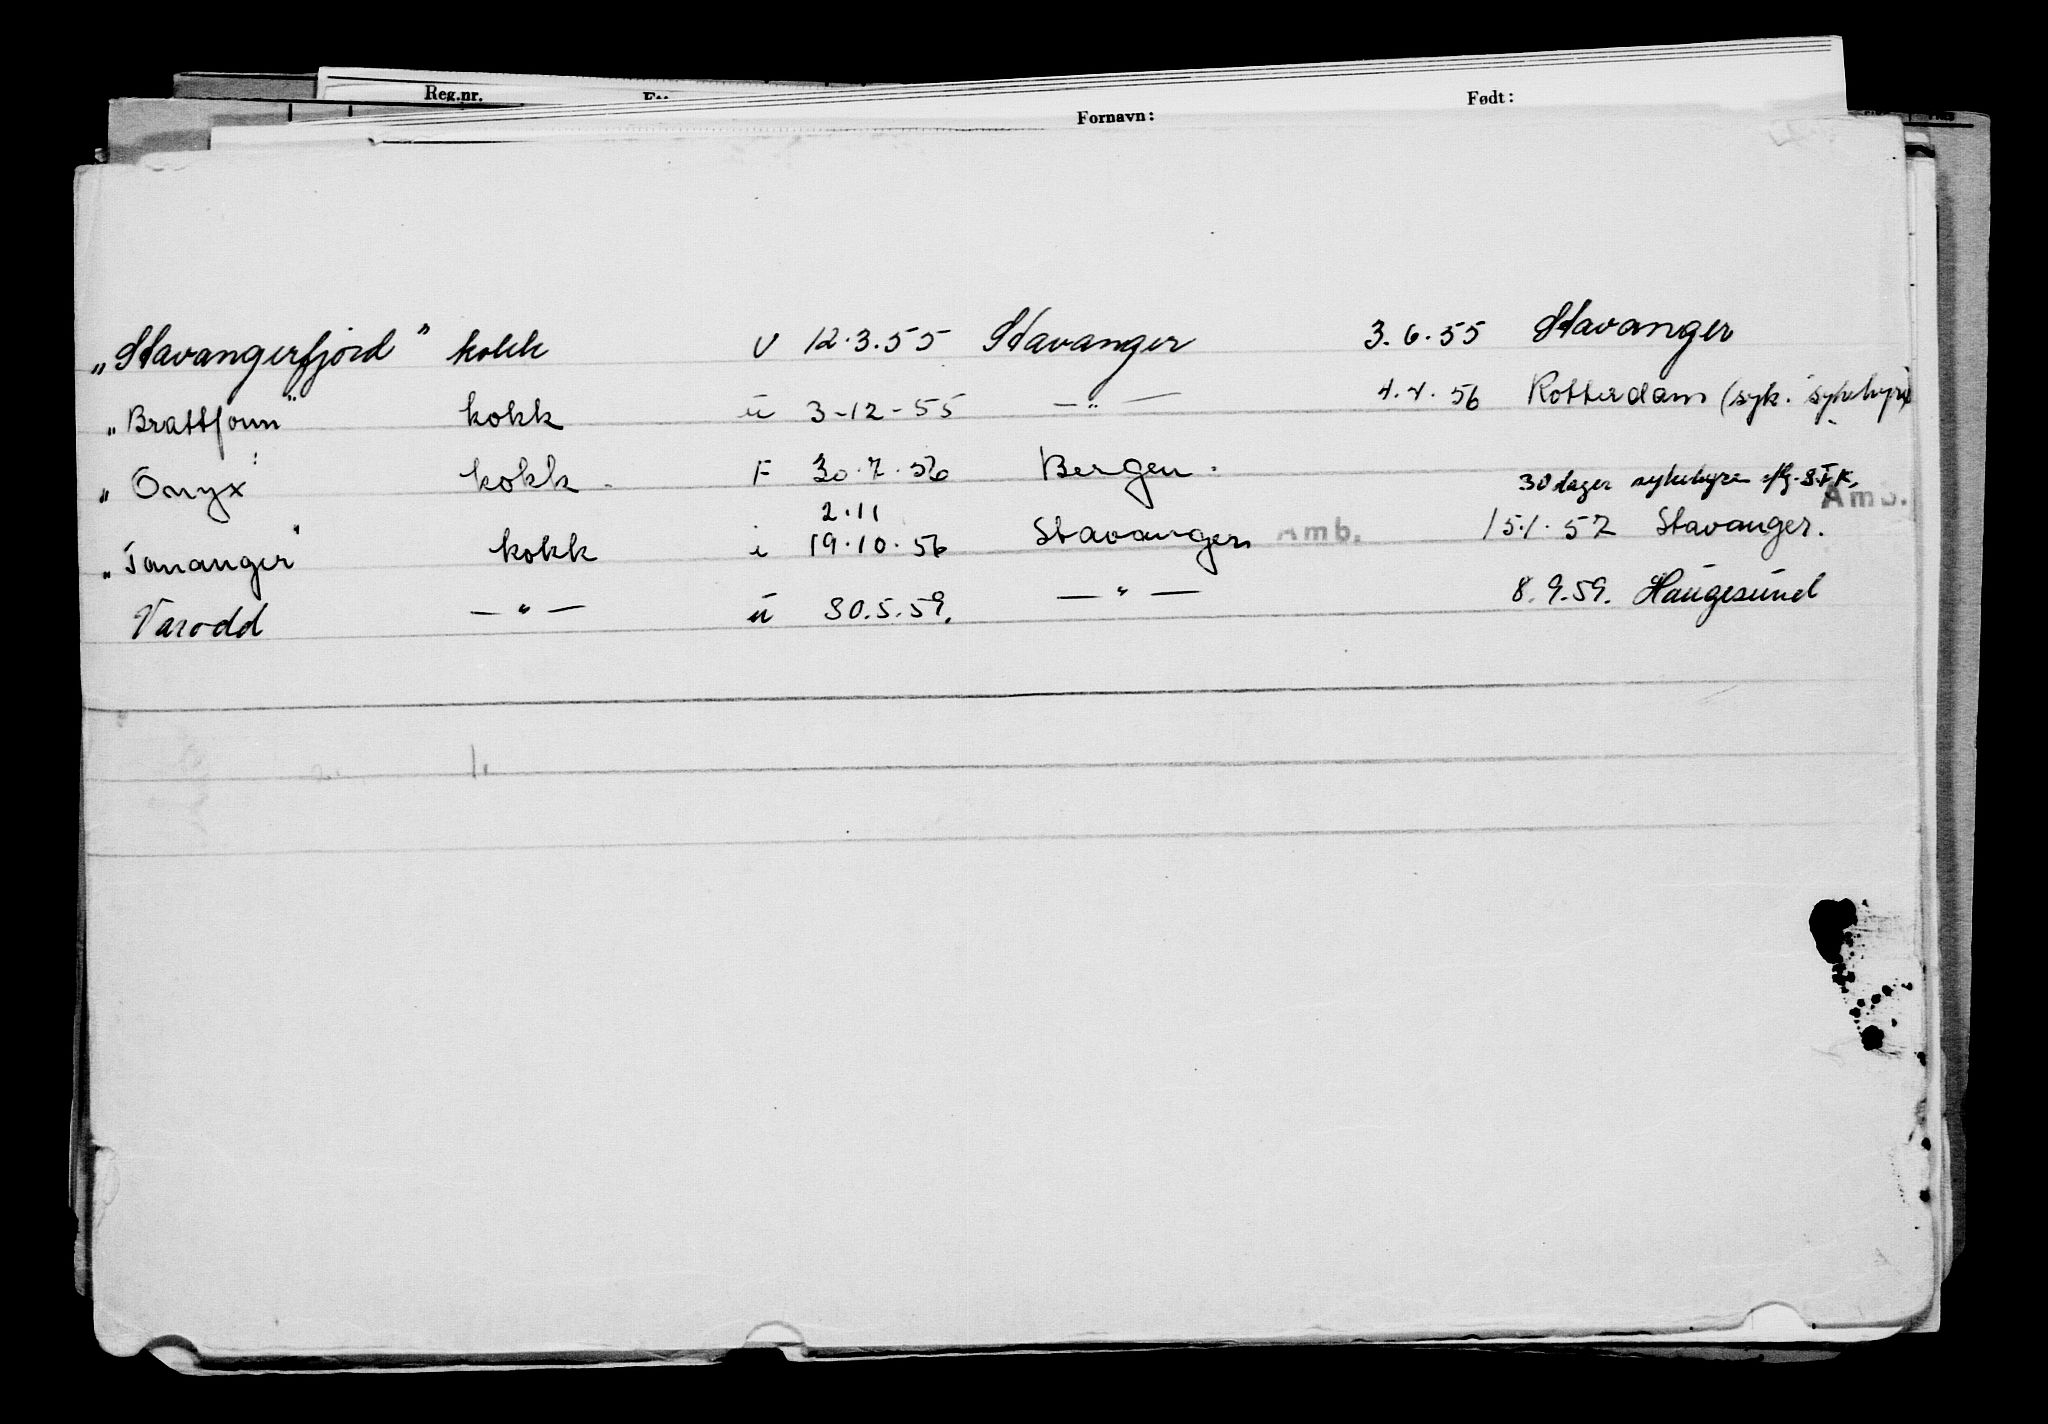 Reg.nr.
Fornavn:
Født:
„Stavangerfjord" kokk v 12.3.55 Stavanger 3.6.55 Stavanger
„Brattfonn" kokk u 3-12-55 — „ — 4.4.56 Rotterdam (syk. sykehyre
„Onyx" kokk F 30.7.56 Bergen. 30 dager sykehyre
2.11 Amb.
„Tananger" kokk i 19.10.56 Stavanger Amb. 15.1.57 Stavanger.
Varodd — „ — u 30.5.59. — „ — 8.9.59. Haugesund